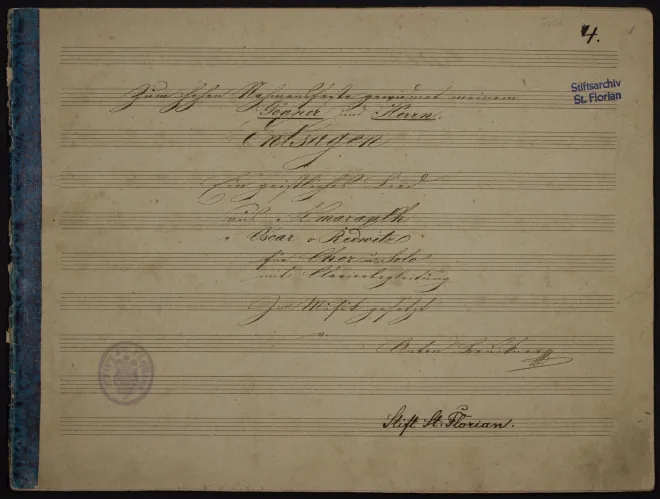 4.
Stiftsarchiv
St. Florian
Zum hohen Nahmensfeste gewidmet meinem
Gönner und Herrn.
Entsagen
Ein geistliches Lied
aus Amaranth
v. Oscar v. Redwitz
für Chor u. Solo
mit Clavierbegleitung
In Musik gesetzt
v.
Anton Bruckner
Stift St. Florian.